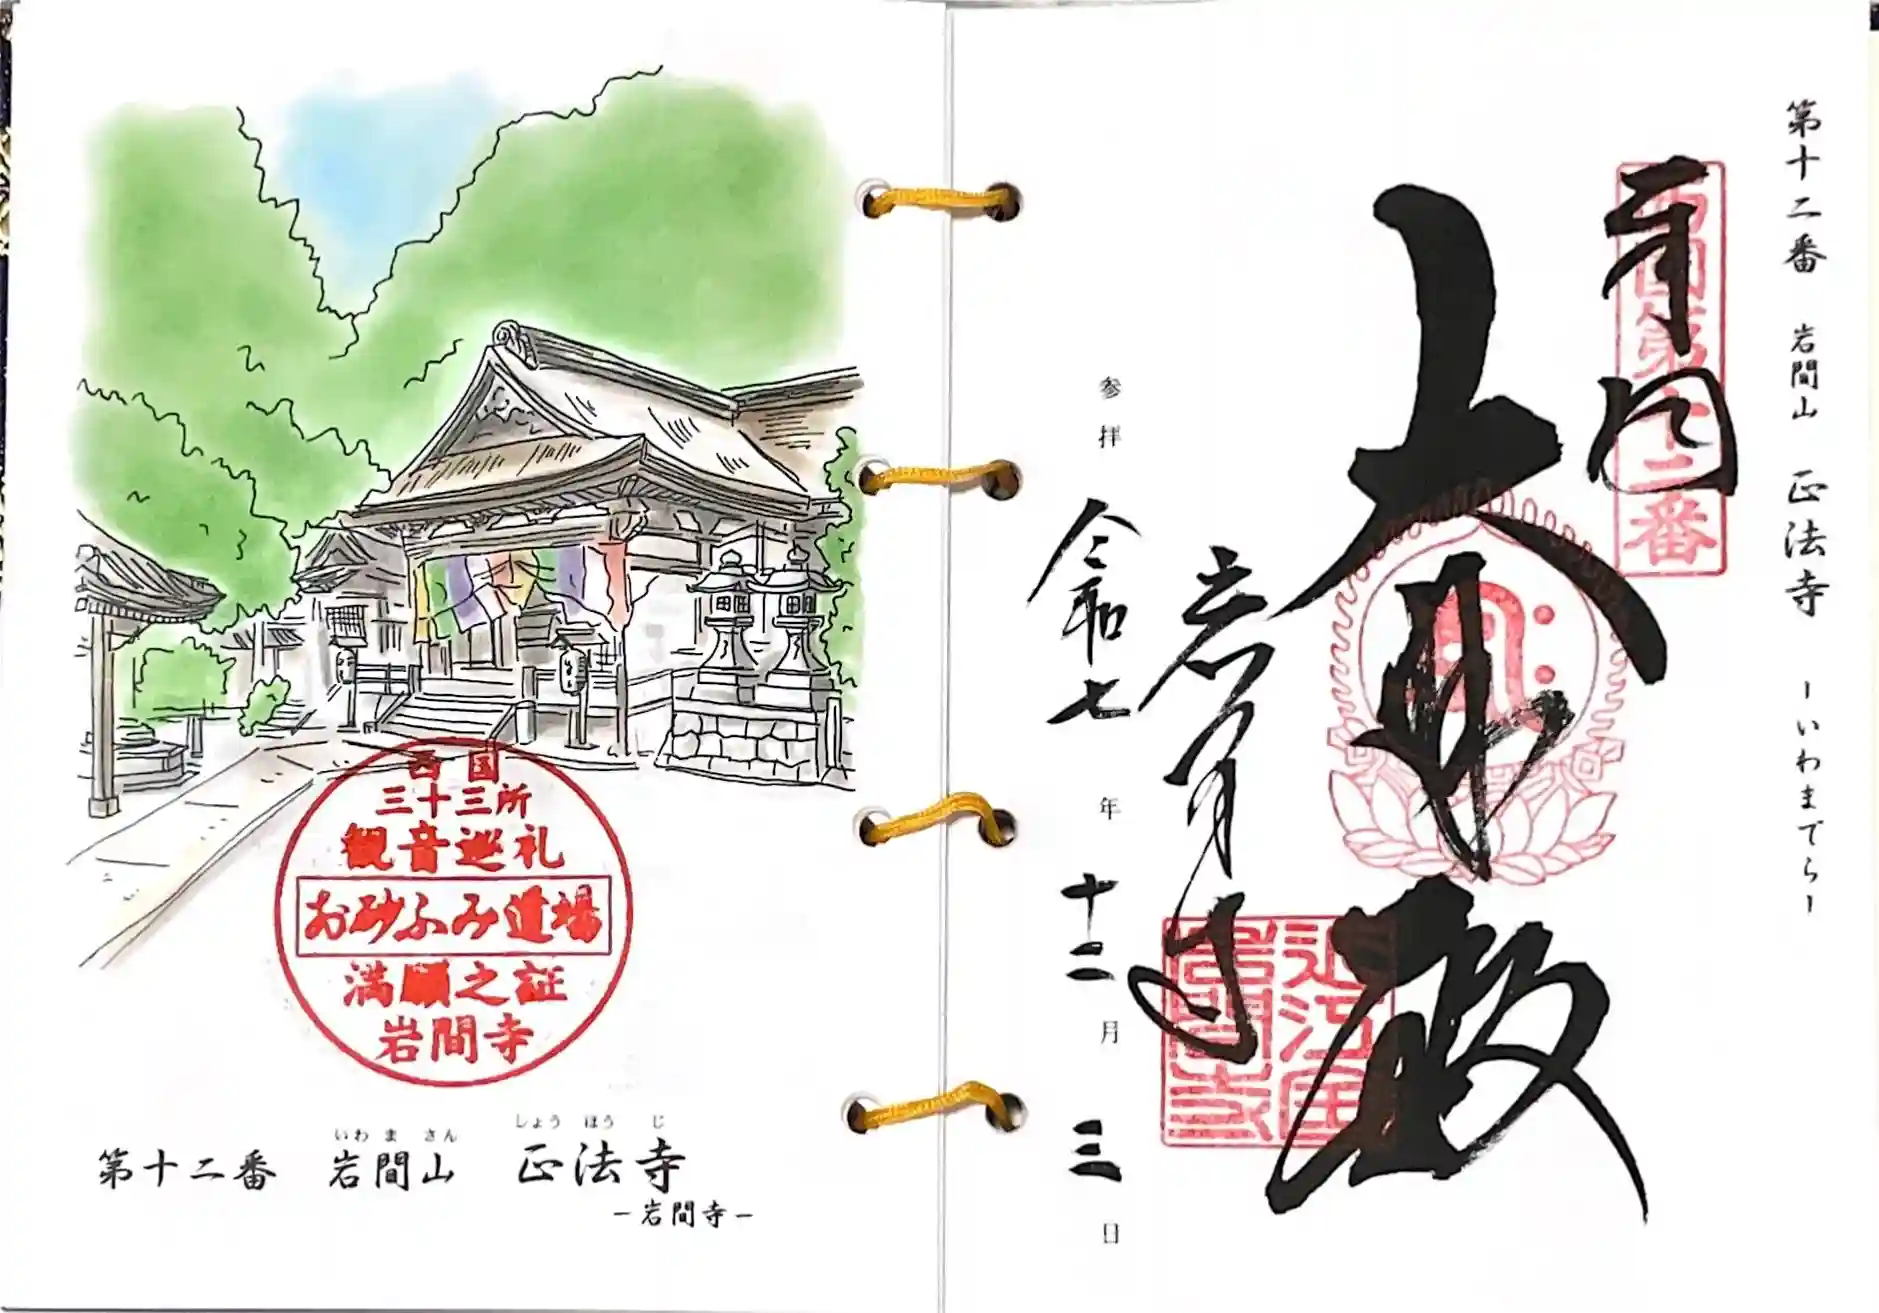 西国
三十三所
観音巡礼
お砂ふみ道場
満願之証
岩間寺
いわ ま さん しょう ほう じ
第十二番 岩間山 正法寺
ー岩間寺ー
第十二番 岩間山 正法寺 ーいわまでらー
奉拝
西国第十二番
大悲殿
岩間寺
近江国
岩間寺
参拝 令和七年 十二月 三日